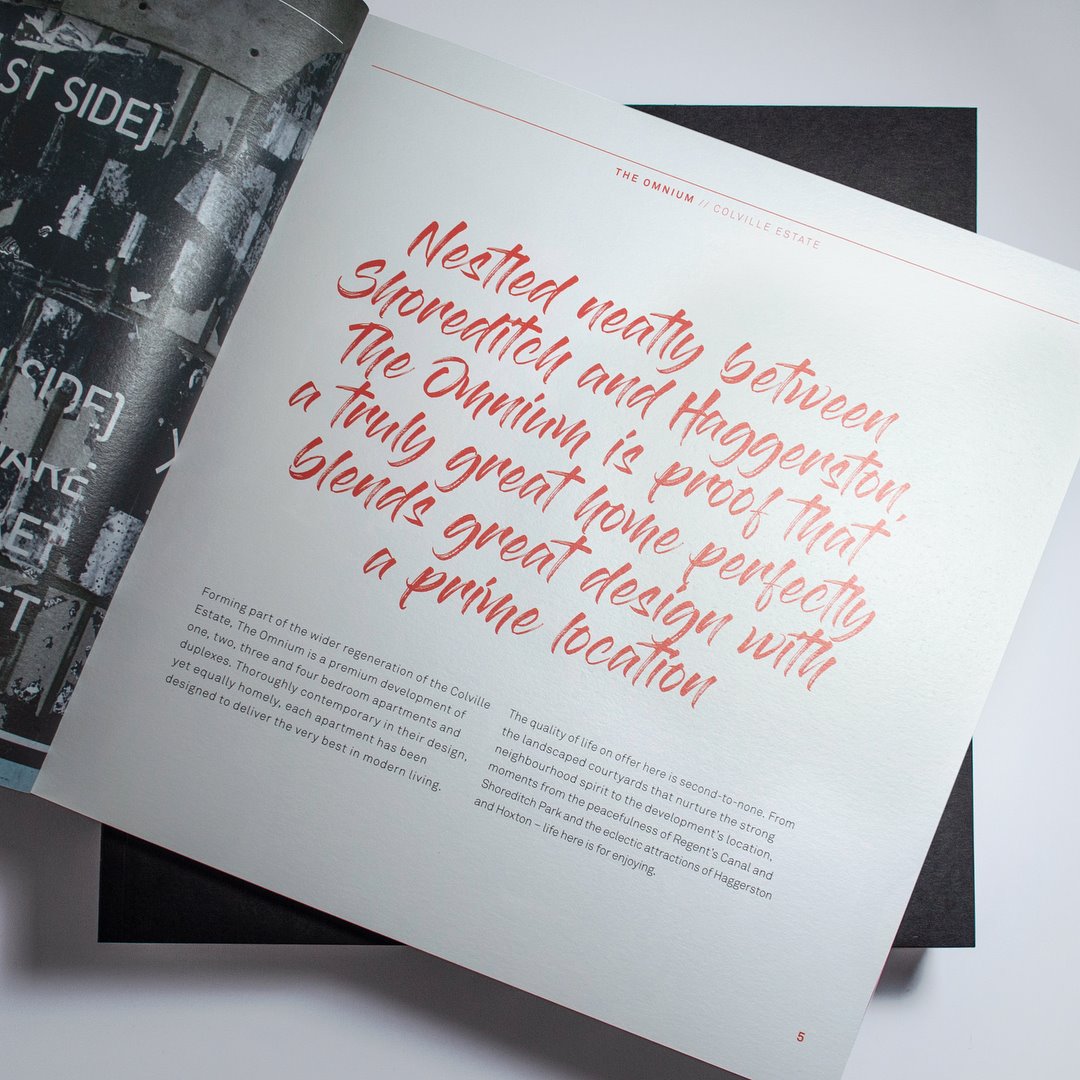 AST SIDE]
SIDE]
ET
THE OMNIUM // COLVILLE ESTATE
Nestled neatly between
Shoreditch and Haggerston,
The Omnium is proof that
a truly great home perfectly
blends great design with
a prime location
Forming part of the wider regeneration of the Colville
Estate, The Omnium is a premium development of
one, two, three and four bedroom apartments and
duplexes. Thoroughly contemporary in their design,
yet equally homely, each apartment has been
designed to deliver the very best in modern living.
The quality of life on offer here is second-to-none. From
the landscaped courtyards that nurture the strong
neighbourhood spirit to the development's location,
moments from the peacefulness of Regent's Canal and
Shoreditch Park and the eclectic attractions of Haggerston
and Hoxton – life here is for enjoying.
5